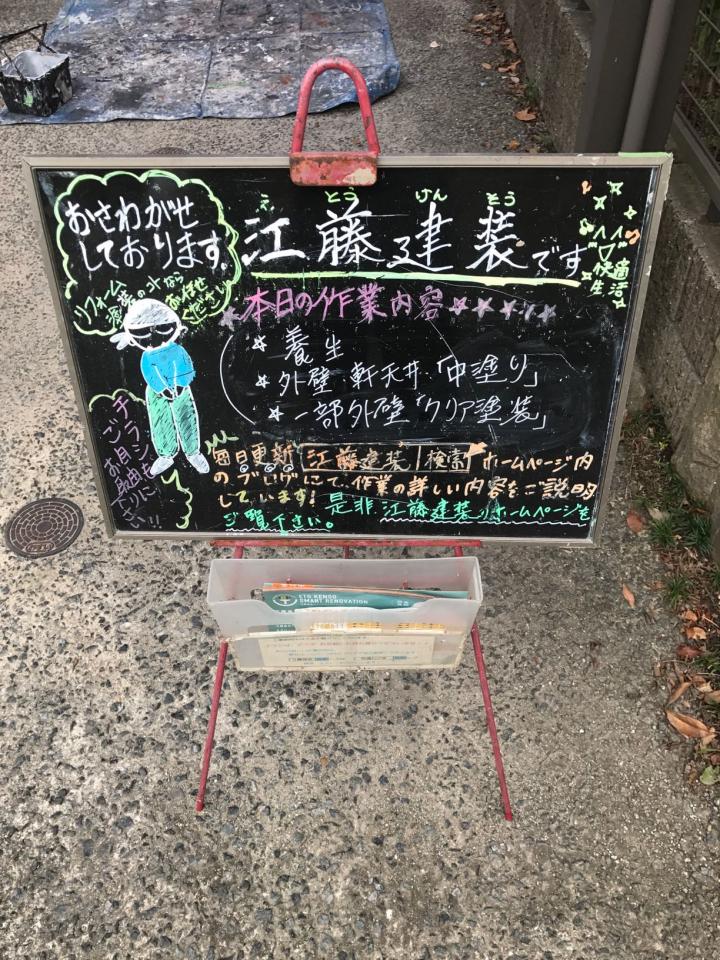 おさわがせ
しております。
リフォーム
塗装の事なら
お任せ
ください
え とう けん そう
江藤建装です
快適
生活
本日の作業内容
養生
外壁・軒天井「中塗り」
一部外壁「クリア塗装」
チラシ
ご自由に
お取り下さい!!
毎日更新 江藤建装 検索 ホームページ内
のブログにて、作業の詳しい内容をご説明
しています! 是非江藤建装のホームページを
ご覧下さい。
ETO KENSO
SMART RENOVATION